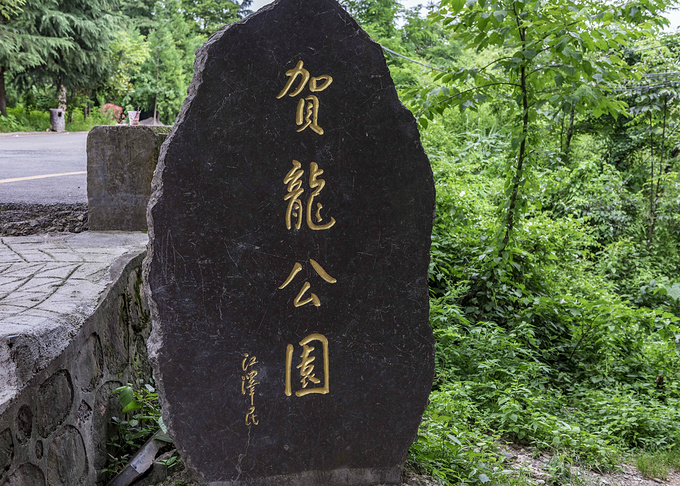 賀龍公園
江澤民